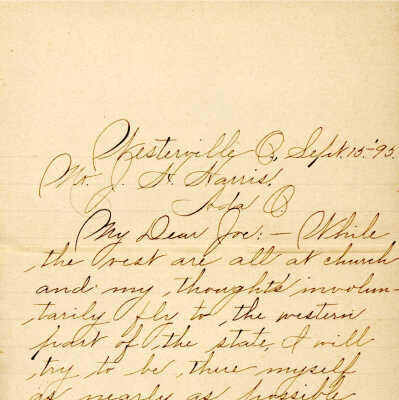 Westerville O., Sept. 15-'95.
Mr. J. H. Harris,
Ada O
My Dear Joe:- While
the rest are all at church
and my thoughts involun-
tarily fly to the western
part of the state, I will
try to be there myself
as nearly as possible